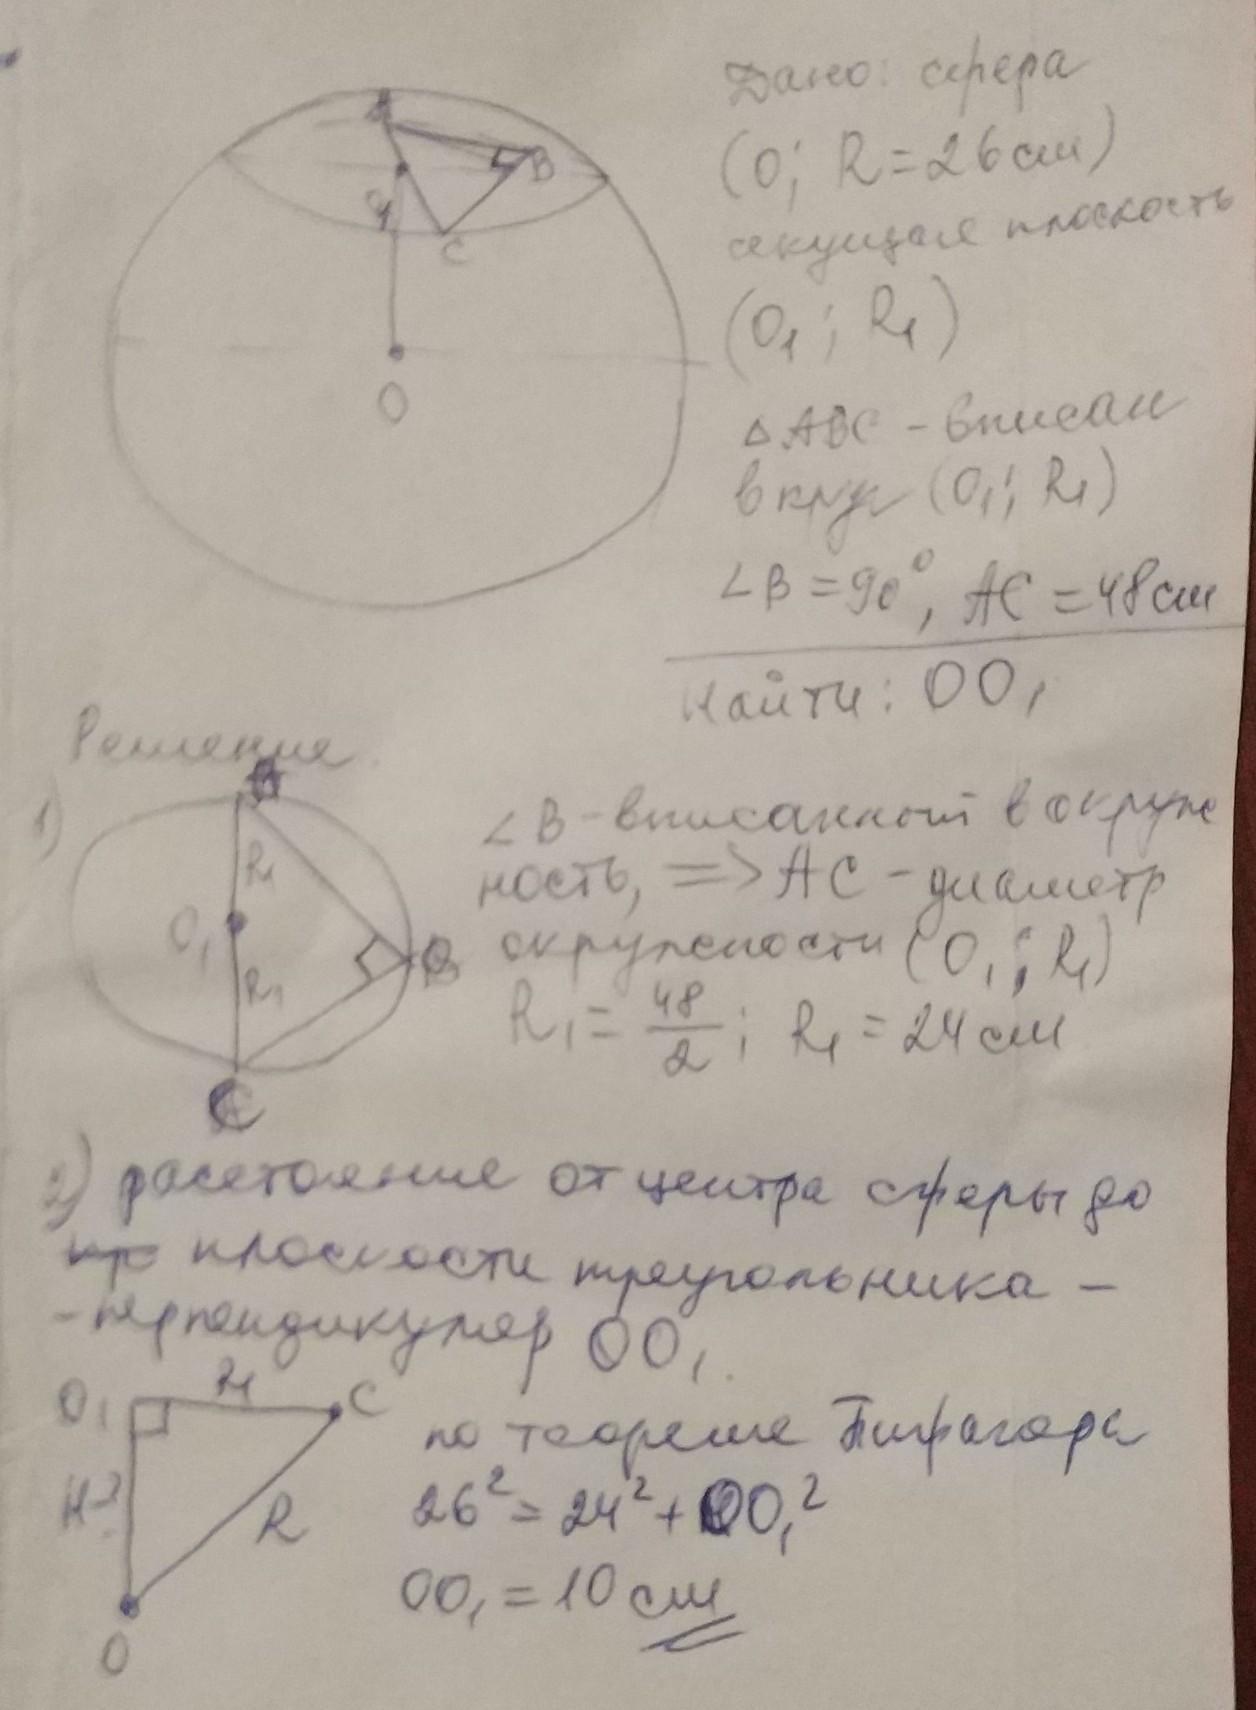 Дано: сфера
(O; R=26 см)
секущая плоскость
(O₁; R₁)
△ABC - вписан
в круг (O₁; R₁)
∠B = 90°, AC = 48 см
Найти: OO₁
A
B
C
O
Решение.
1)
R₁
O₁
R₁
B
C
∠B - вписанный в окруж
ность, => AC - диаметр
окружности (O₁; R₁)
R₁ = 48/2; R₁ = 24 см
2) расстояние от центра сферы до
плоскости треугольника -
- перпендикуляр OO₁.
O₁ R₁ C
H-?
R
O
по теореме Пифагора
26² = 24² + OO₁²
OO₁ = 10 см